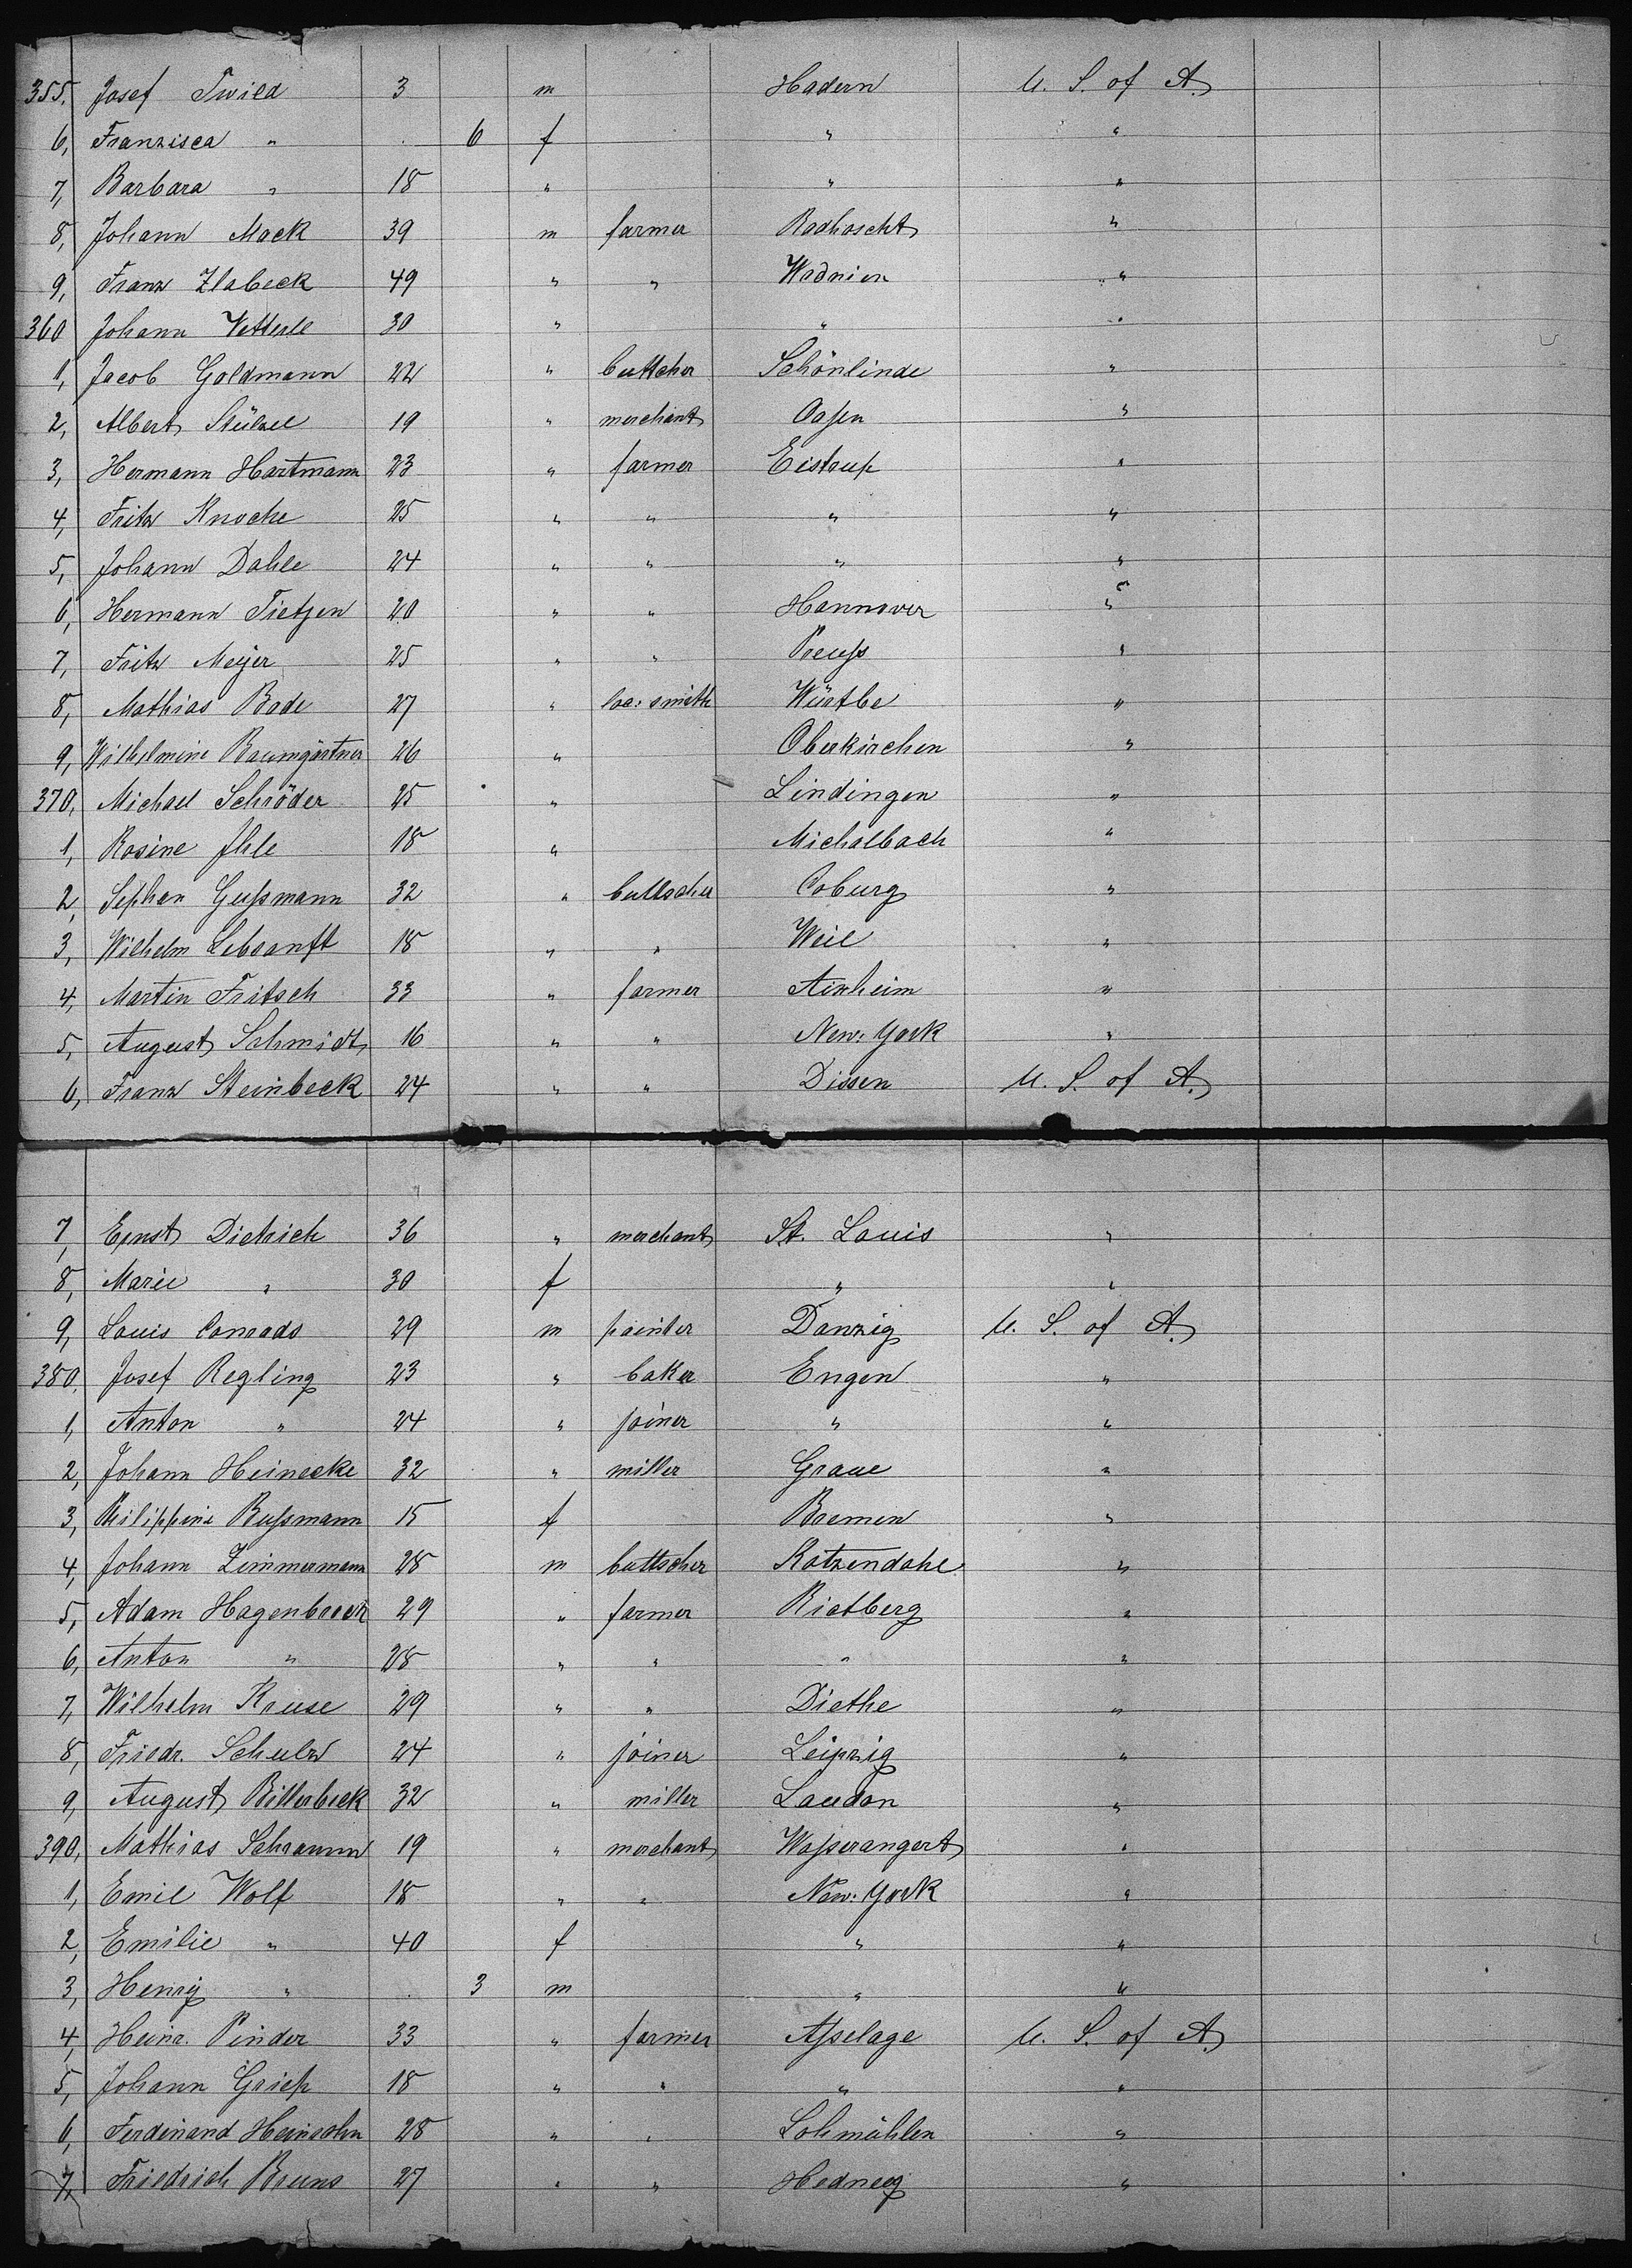 355, Josef Twild 3 m Hadern U. S. of A.
6, Franzisca " . 6 f " "
7, Barbara " 18 " " "
8, Johann Mack 39 m farmer Radhoscht "
9, Franz Zlabeck 49 " " Wodnian "
360 Johann Vetterle 30 " " "
1, Jacob Goldmann 22 " buttcher Schönlinde "
2, Albert Stülzel 19 " merchant Oassen "
3, Hermann Hartmann 23 " farmer Eistrup "
4, Fritz Knoche 25 " " " "
5, Johann Dahle 24 " " " "
6, Hermann Tietjen 20 " " Hannover "
7, Fritz Meyer 25 " " Preuss "
8, Mathias Bade 27 " smith Würtbe "
9, Wilhelmine Baumgärtner 26 " Oberkirchen "
370, Michael Schröder 25 " Lindingen "
1, Rosine Ihle 18 " Michalbach "
2, Sephan Gussmann 32 " buttscher Coburg "
3, Wilhelm Lebsanft 18 " " Weil "
4, Martin Fritsch 33 " farmer Aixheim "
5, August Schmidt 16 " " New: York "
6, Franz Steinbeck 24 " " Dissen U. S. of A.
7, Ernst Dietrich 36 " merchant St. Louis "
8, Marie " 30 f " "
9, Louis Conrads 29 m painter Danzig U. S. of A.
380, Josef Regling 23 " baker Engen "
1, Anton " 24 " joiner " "
2, Johann Heinecke 32 " miller Graue "
3, Philippine Bussmann 15 f Bremen "
4, Johann Zimmermann 28 m buttscher Katzendahl "
5, Adam Hagenbrock 29 " farmer Rietberg "
6, Anton " 28 " " " "
7, Wilhelm Kruse 29 " " Diethe "
8, Friedr. Schulz 24 " joiner Leipzig "
9, August Billerbeck 32 " miller Landon "
390, Mathias Schramm 19 " merchant Wasserangert "
1, Emil Wolf 18 " " New: York "
2, Emilie " 40 f " "
3, Henry " . 3 m " "
4, Heinr. Pinder 33 " farmer Asselage U. S. of A.
5, Johann Griep 18 " " " "
6, Ferdinand Heinsohn 28 " " Lohmühlen "
7, Friedrich Bruns 27 " " "